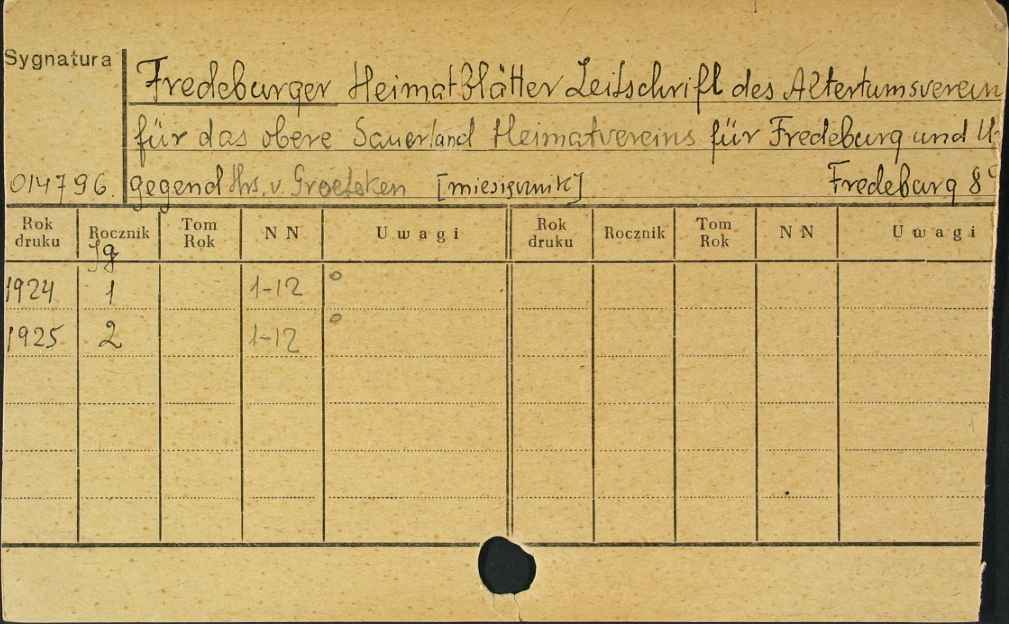 Sygnatura
Fredeburger Heimatblätter Zeitschrift des Altertumsverein
für das obere Sauerland Heimatvereins für Fredeburg und U-
014796. gegend Hrs. v. [miesięcznik] Fredeburg 8°
Rok druku Rocznik Tom Rok NN Uwagi Rok druku Rocznik Tom Rok NN Uwagi
Jg
1924 1 1-12 °
1925 2 1-12 °